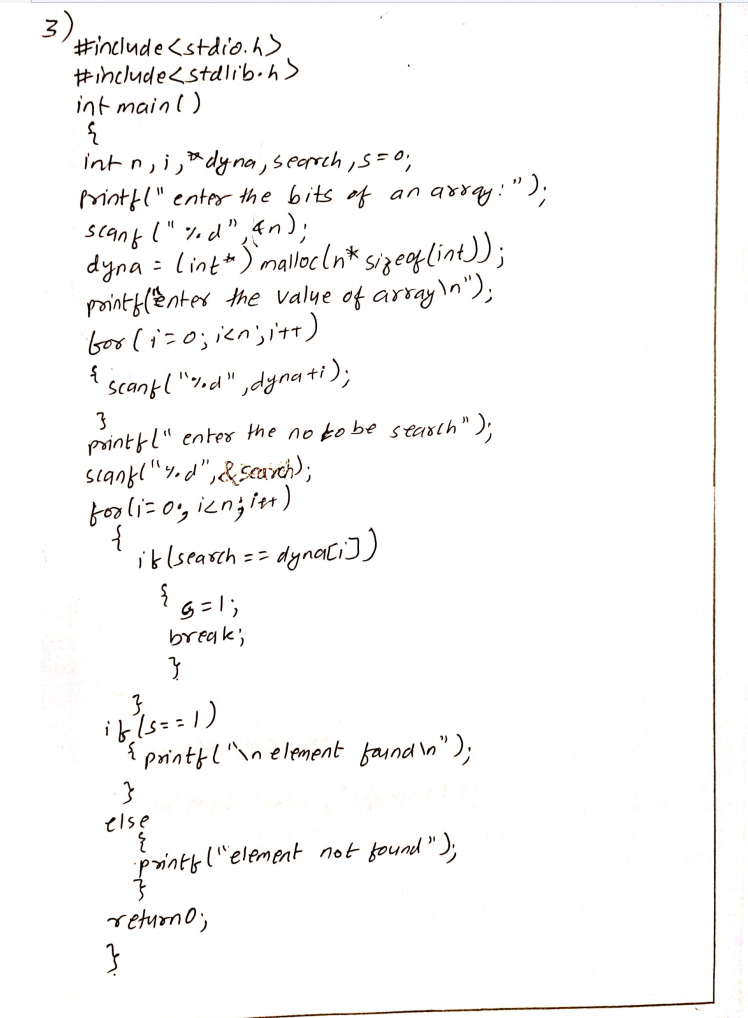 3)
#include<stdio.h>
#include<stdlib.h>
int main()
{
int n, i, *dyna, search, s=0;
printf(" enter the bits of an array: ");
scanf (" %d", &n);
dyna = (int*) malloc(n* sizeof(int));
printf("enter the value of array\n");
for (i=0; i<n; i++)
{ scanf("%d", dyna+i);
}
printf(" enter the no to be search");
scanf("%d", &search);
for(i=0; i<n; i++)
{
if(search == dyna[i])
{ s=1;
break;
}
}
if(s==1)
{ printf("\n element found\n");
}
else
{
printf("element not found");
}
return 0;
}